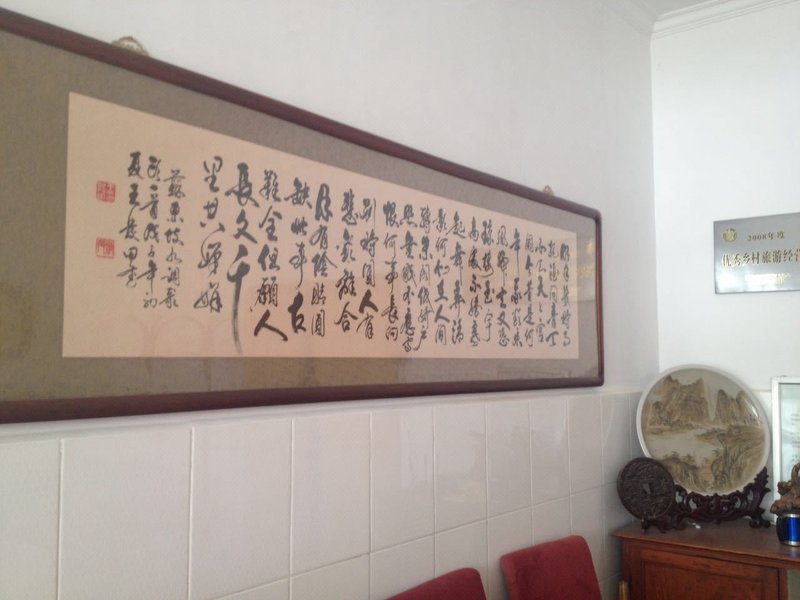 明月幾時有
把酒問青天
不知天上宮
闕今夕是何
年我欲乘
風歸去又恐
瓊樓玉宇
高處不勝寒
起舞弄清
影何似在人間
轉朱閣低綺户
照無眠不應有
恨何事長向
别時圓人有
悲歡離合
月有陰晴圓
缺此事古
難全但願人
長久千
里共嬋娟
蘇東坡水調歌
頭一首戊子年初
夏王
2008年度
优秀乡村旅游经营